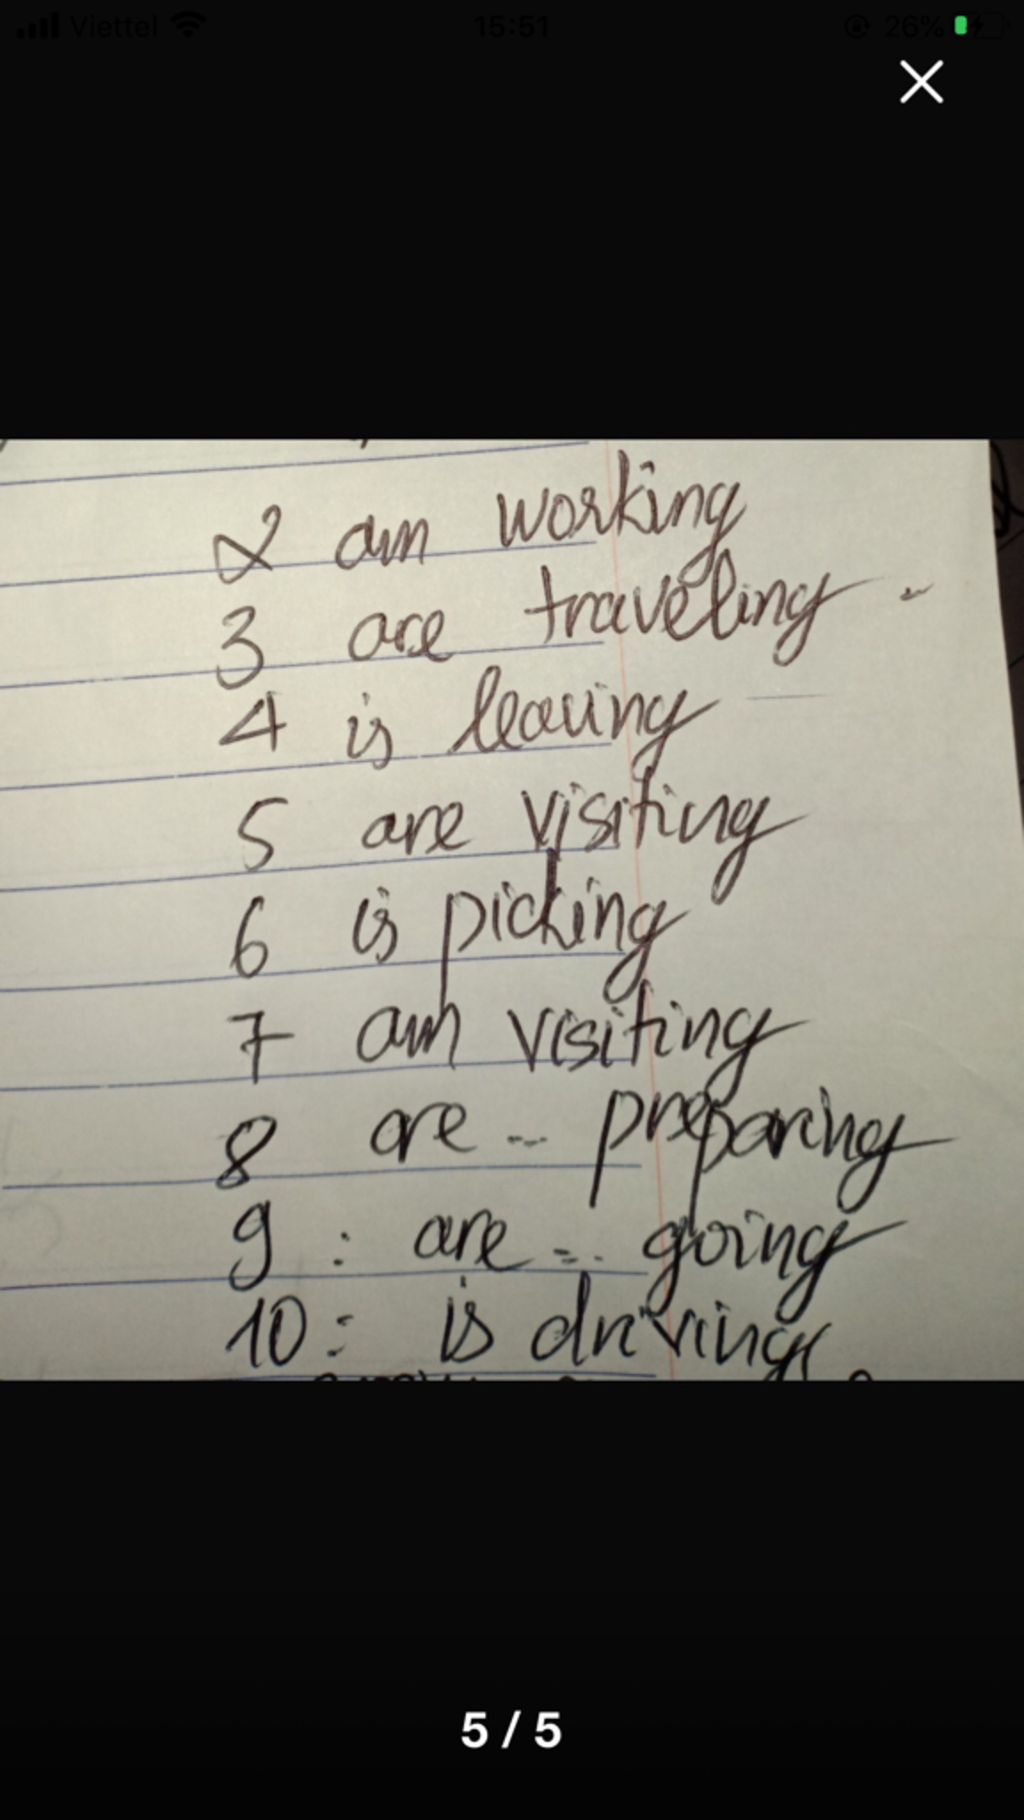 Viettel 15:51 26%
2 am working
3 are traveling
4 is leaving
5 are visiting
6 is picking
7 am visiting
8 are ... preparing
9 : are ... going
10 : is driving
5 / 5